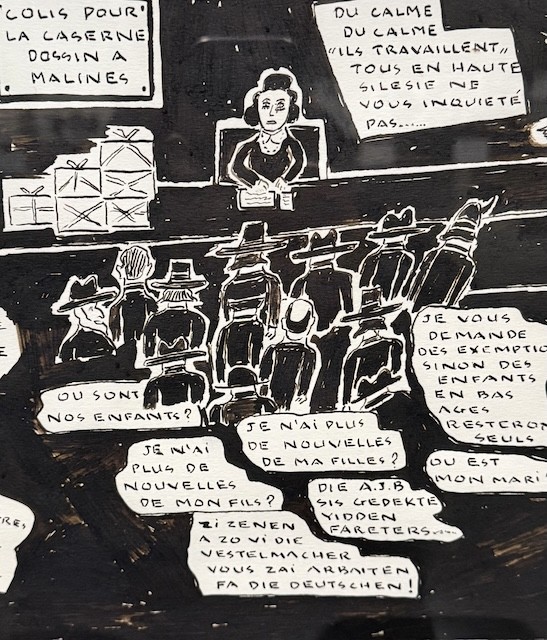 COLIS POUR
LA CASERNE
DOSSIN A
MALINES
DU CALME
DU CALME
"ILS TRAVAILLENT"
TOUS EN HAUTE
SILESIE NE
VOUS INQUIETÉ
PAS.....
JE VOUS
DEMANDE
DES EXEMPTIO
SINON DES
ENFANTS
EN BAS
AGES
RESTERON
SEULS
OU SONT
NOS ENFANTS?
JE N'AI PLUS
DE NOUVELLES
DE MA FILLES?
JE N'AI
PLUS DE
NOUVELLES
DE MON FILS?
OU EST
MON MARI
DIE A.J.B
SIS GEDEKTE
YIDDEN
FARETERS....
ZI ZENEN
A ZO VI DIE
VESTELMACHER
VOUS ZAI ARBAITEN
FA DIE DEUTSCHEN!